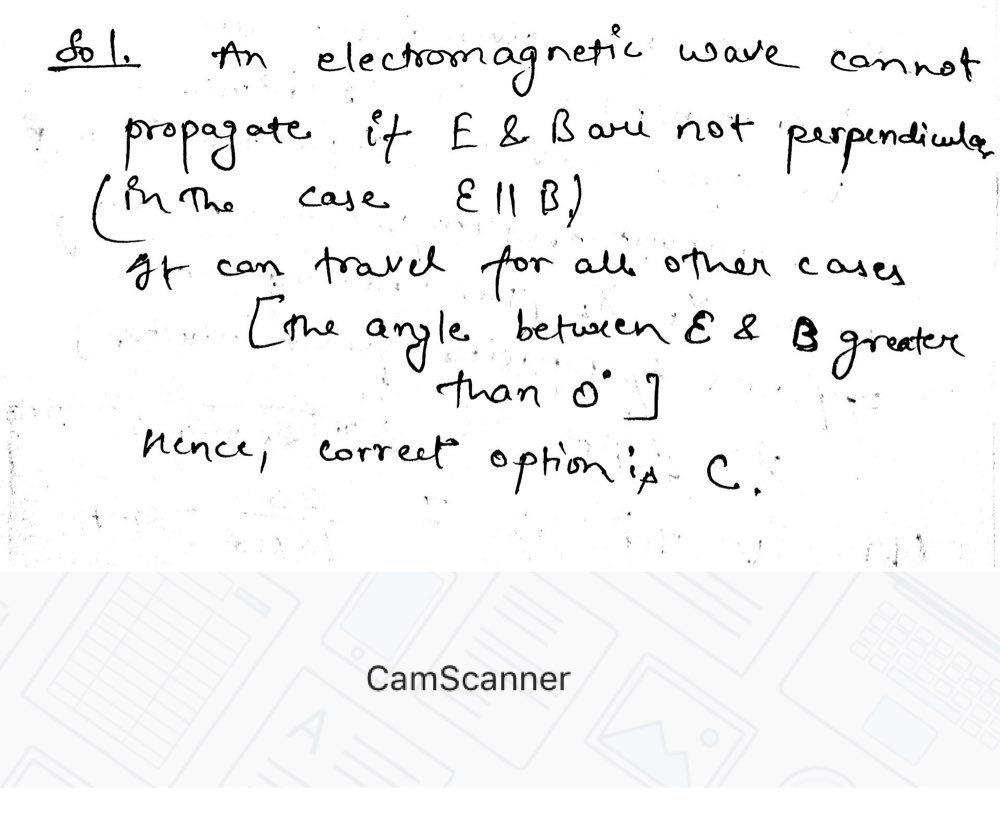 Sol. An electromagnetic wave cannot
propagate if E & B are not perpendicular
(in the case E || B)
It can travel for all other cases
[the angle between E & B greater
than 0° ]
Hence, correct option is C.
CamScanner